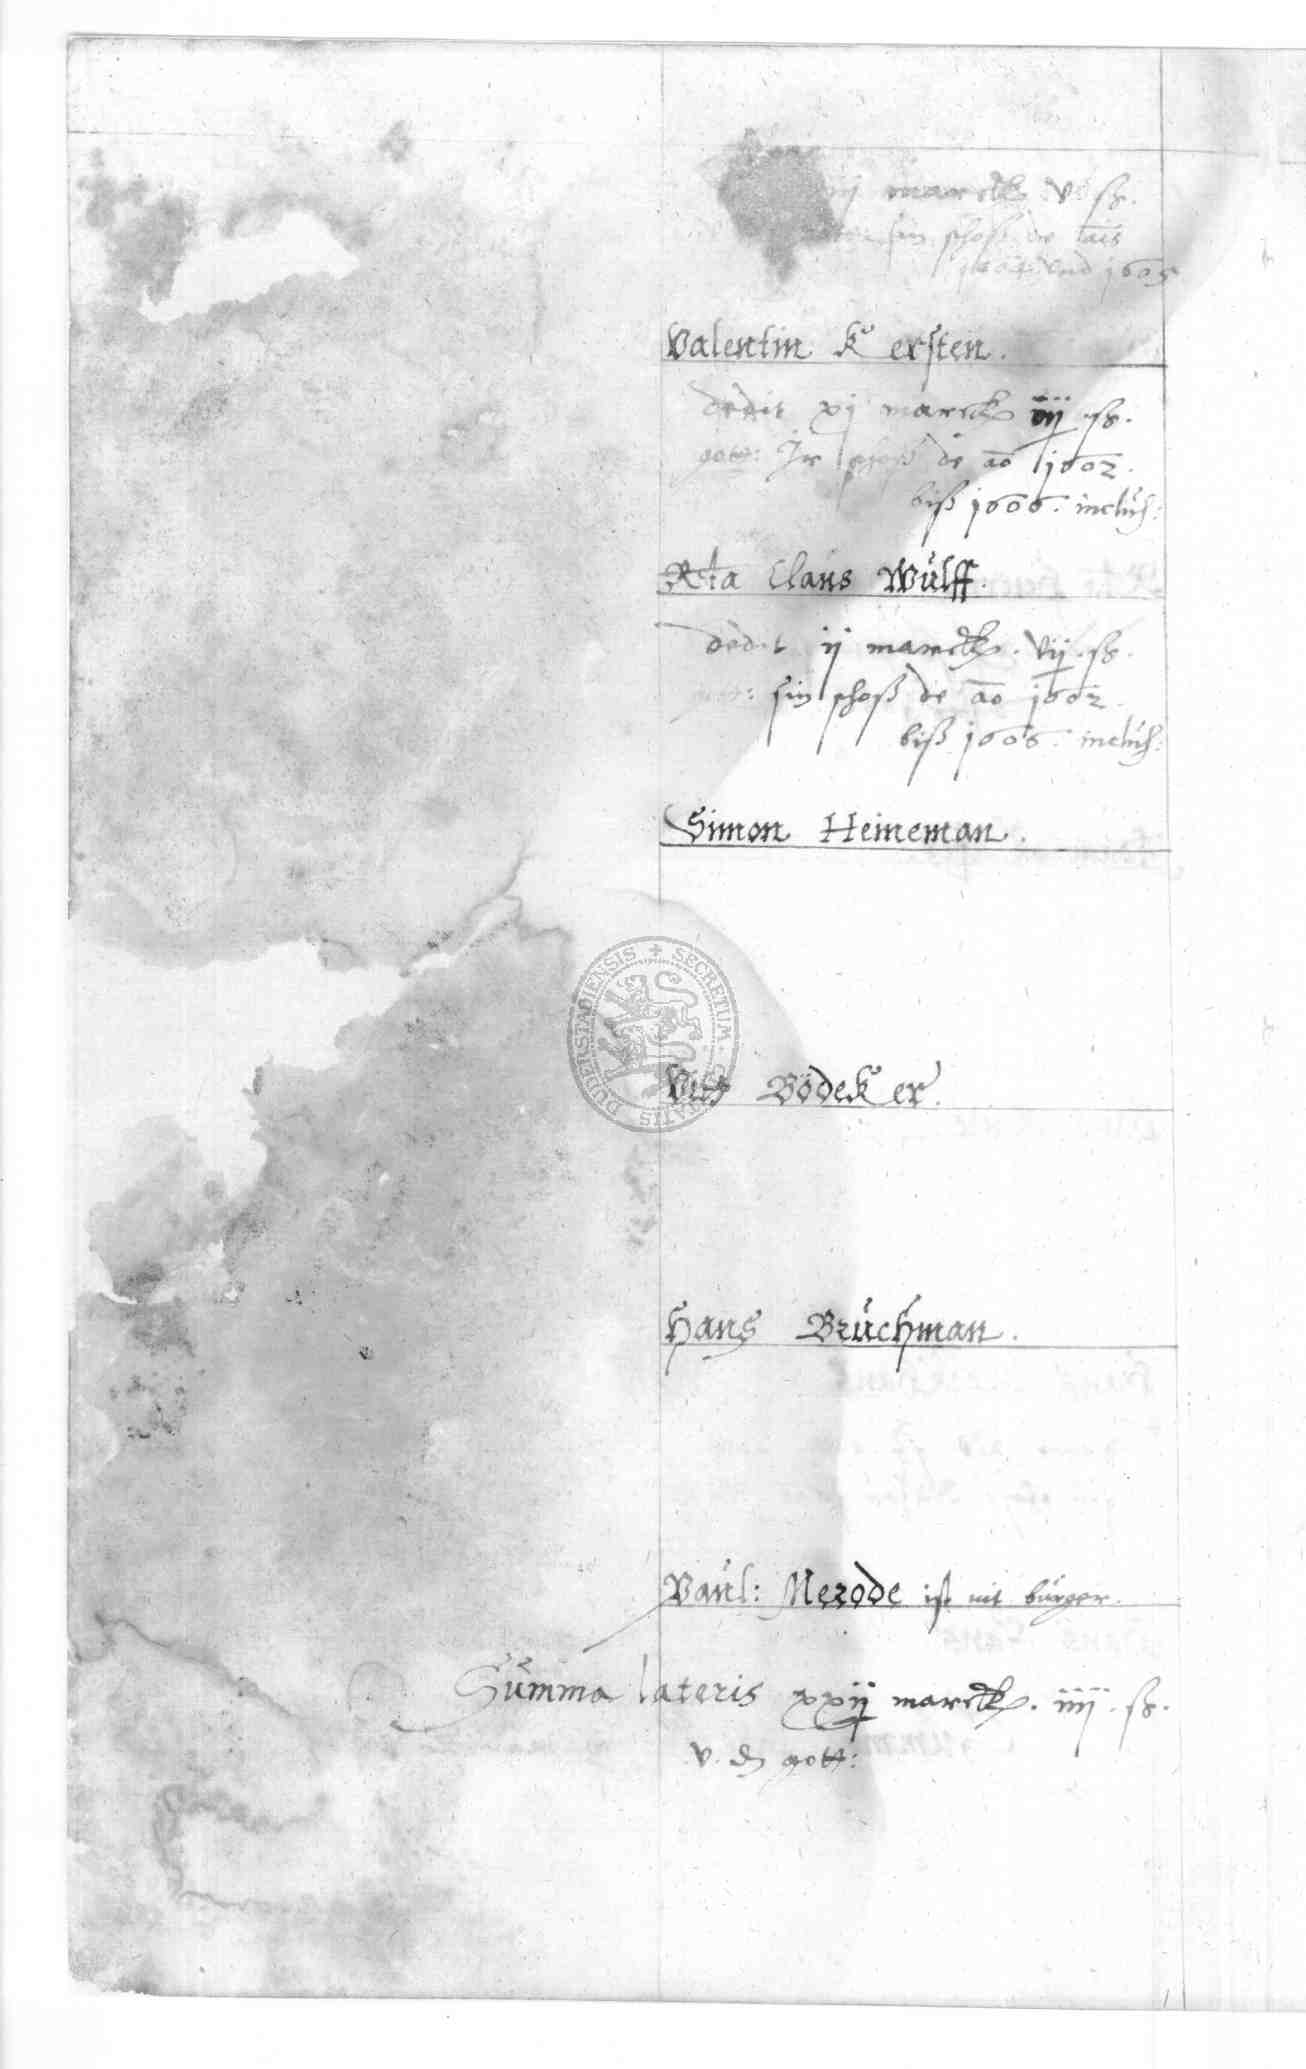 ij marck v ß.
sin schoß de ais
1604 und 1605
Valentin Kersten.
dedit xj marck iij ß.
gott: Ir schoß de ao 1602.
biß 1606. inclus:
Rta Claus Wulff.
dedit ij marck. vij. ß.
gott: sin schoß de ao 1602.
biß 1606. inclus:
Simon Heineman.
DUDERSTADIENSIS SECRETUM
Bödeker.
Hans Bruchman.
Paul: Merode ist nit burger.
Summa lateris xxij marck. iiij. ß.
v. d gott: